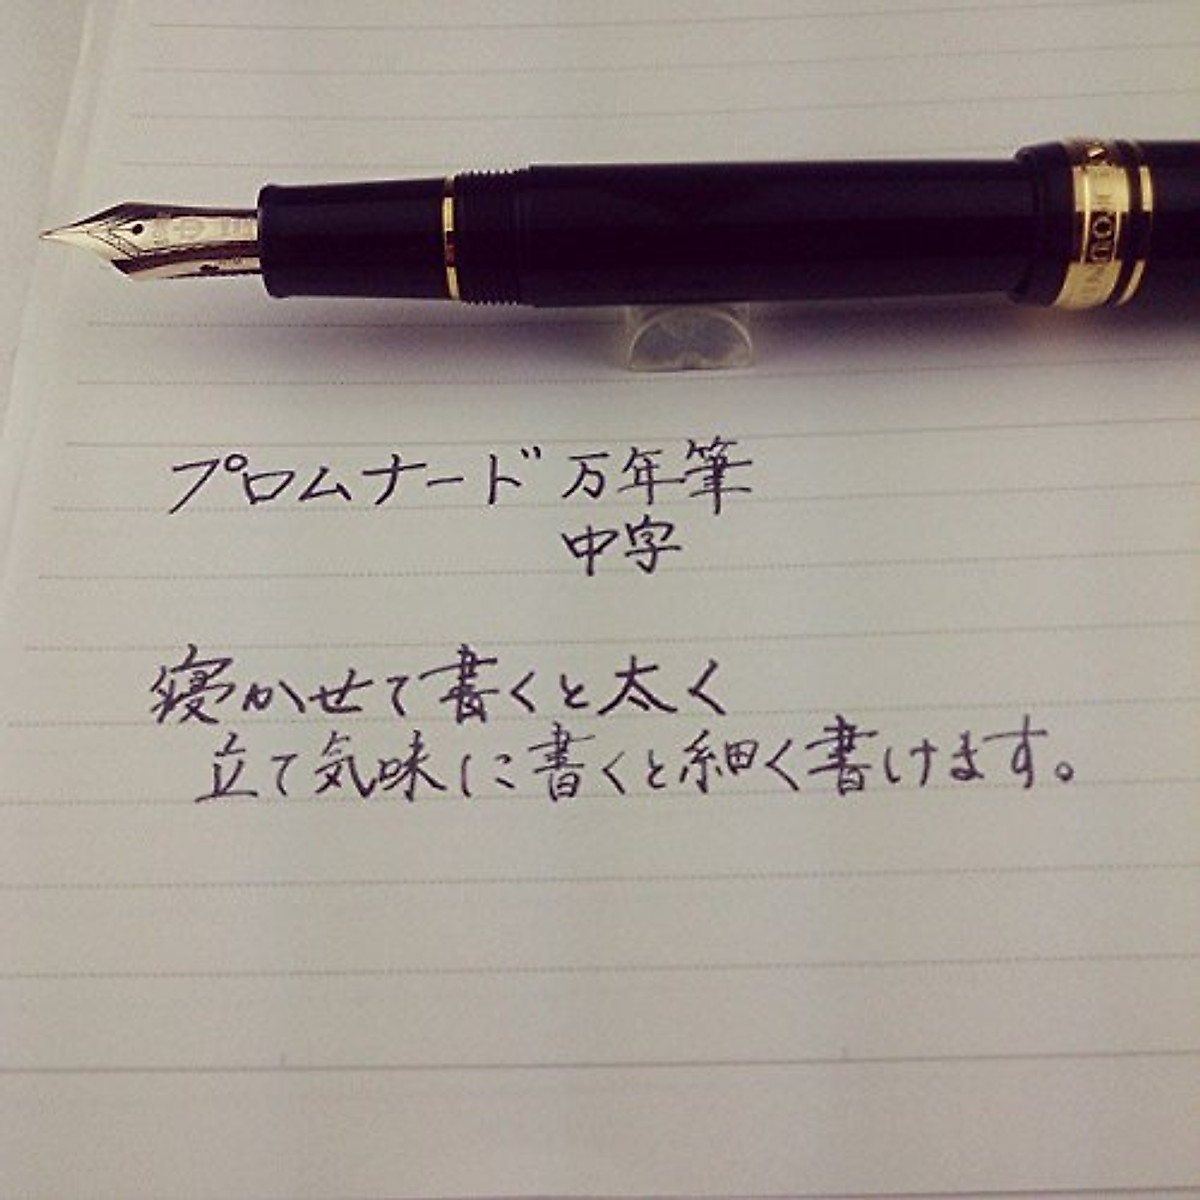 プロムナード 万年筆
中字
寝かせて書くと太く
立て気味に書くと細く書けます。